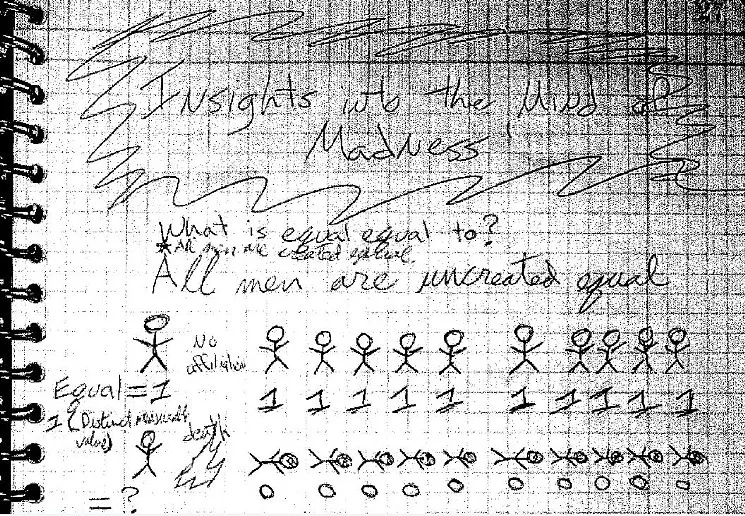 Insights into the Mind of
Madness'
What is equal equal to?
*All men are created equal.
All men are uncreated equal
No
affiliation
Equal = 1
1 1 1 1 1 1 1 1 1 1
1 (Distinct measurable
value)
death
0 0 0 0 0 0 0 0 0 0
= ?